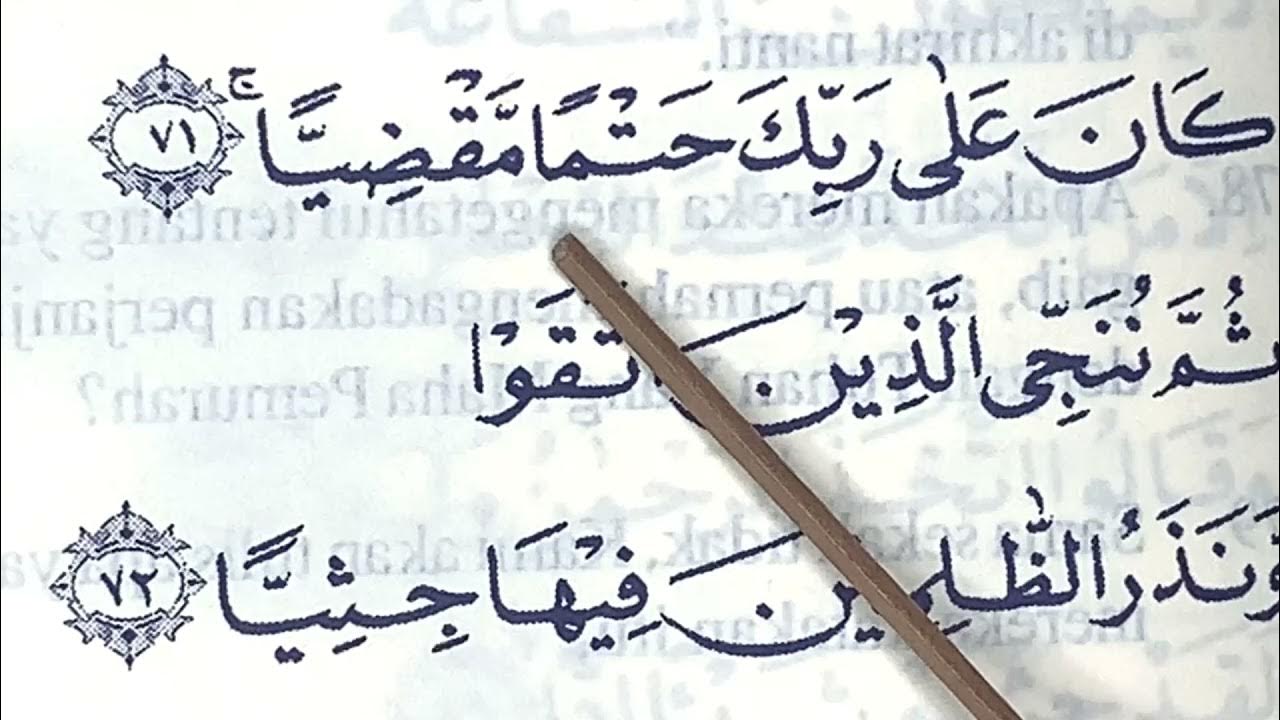 كَانَ عَلٰى رَبِّكَ حَتْمًا مَّقْضِيًّا ۚ ٧١
ثُمَّ نُنَجِّى الَّذِيْنَ اتَّقَوْا
وَّنَذَرُ الظّٰلِمِيْنَ فِيْهَا جِثِيًّا ٧٢